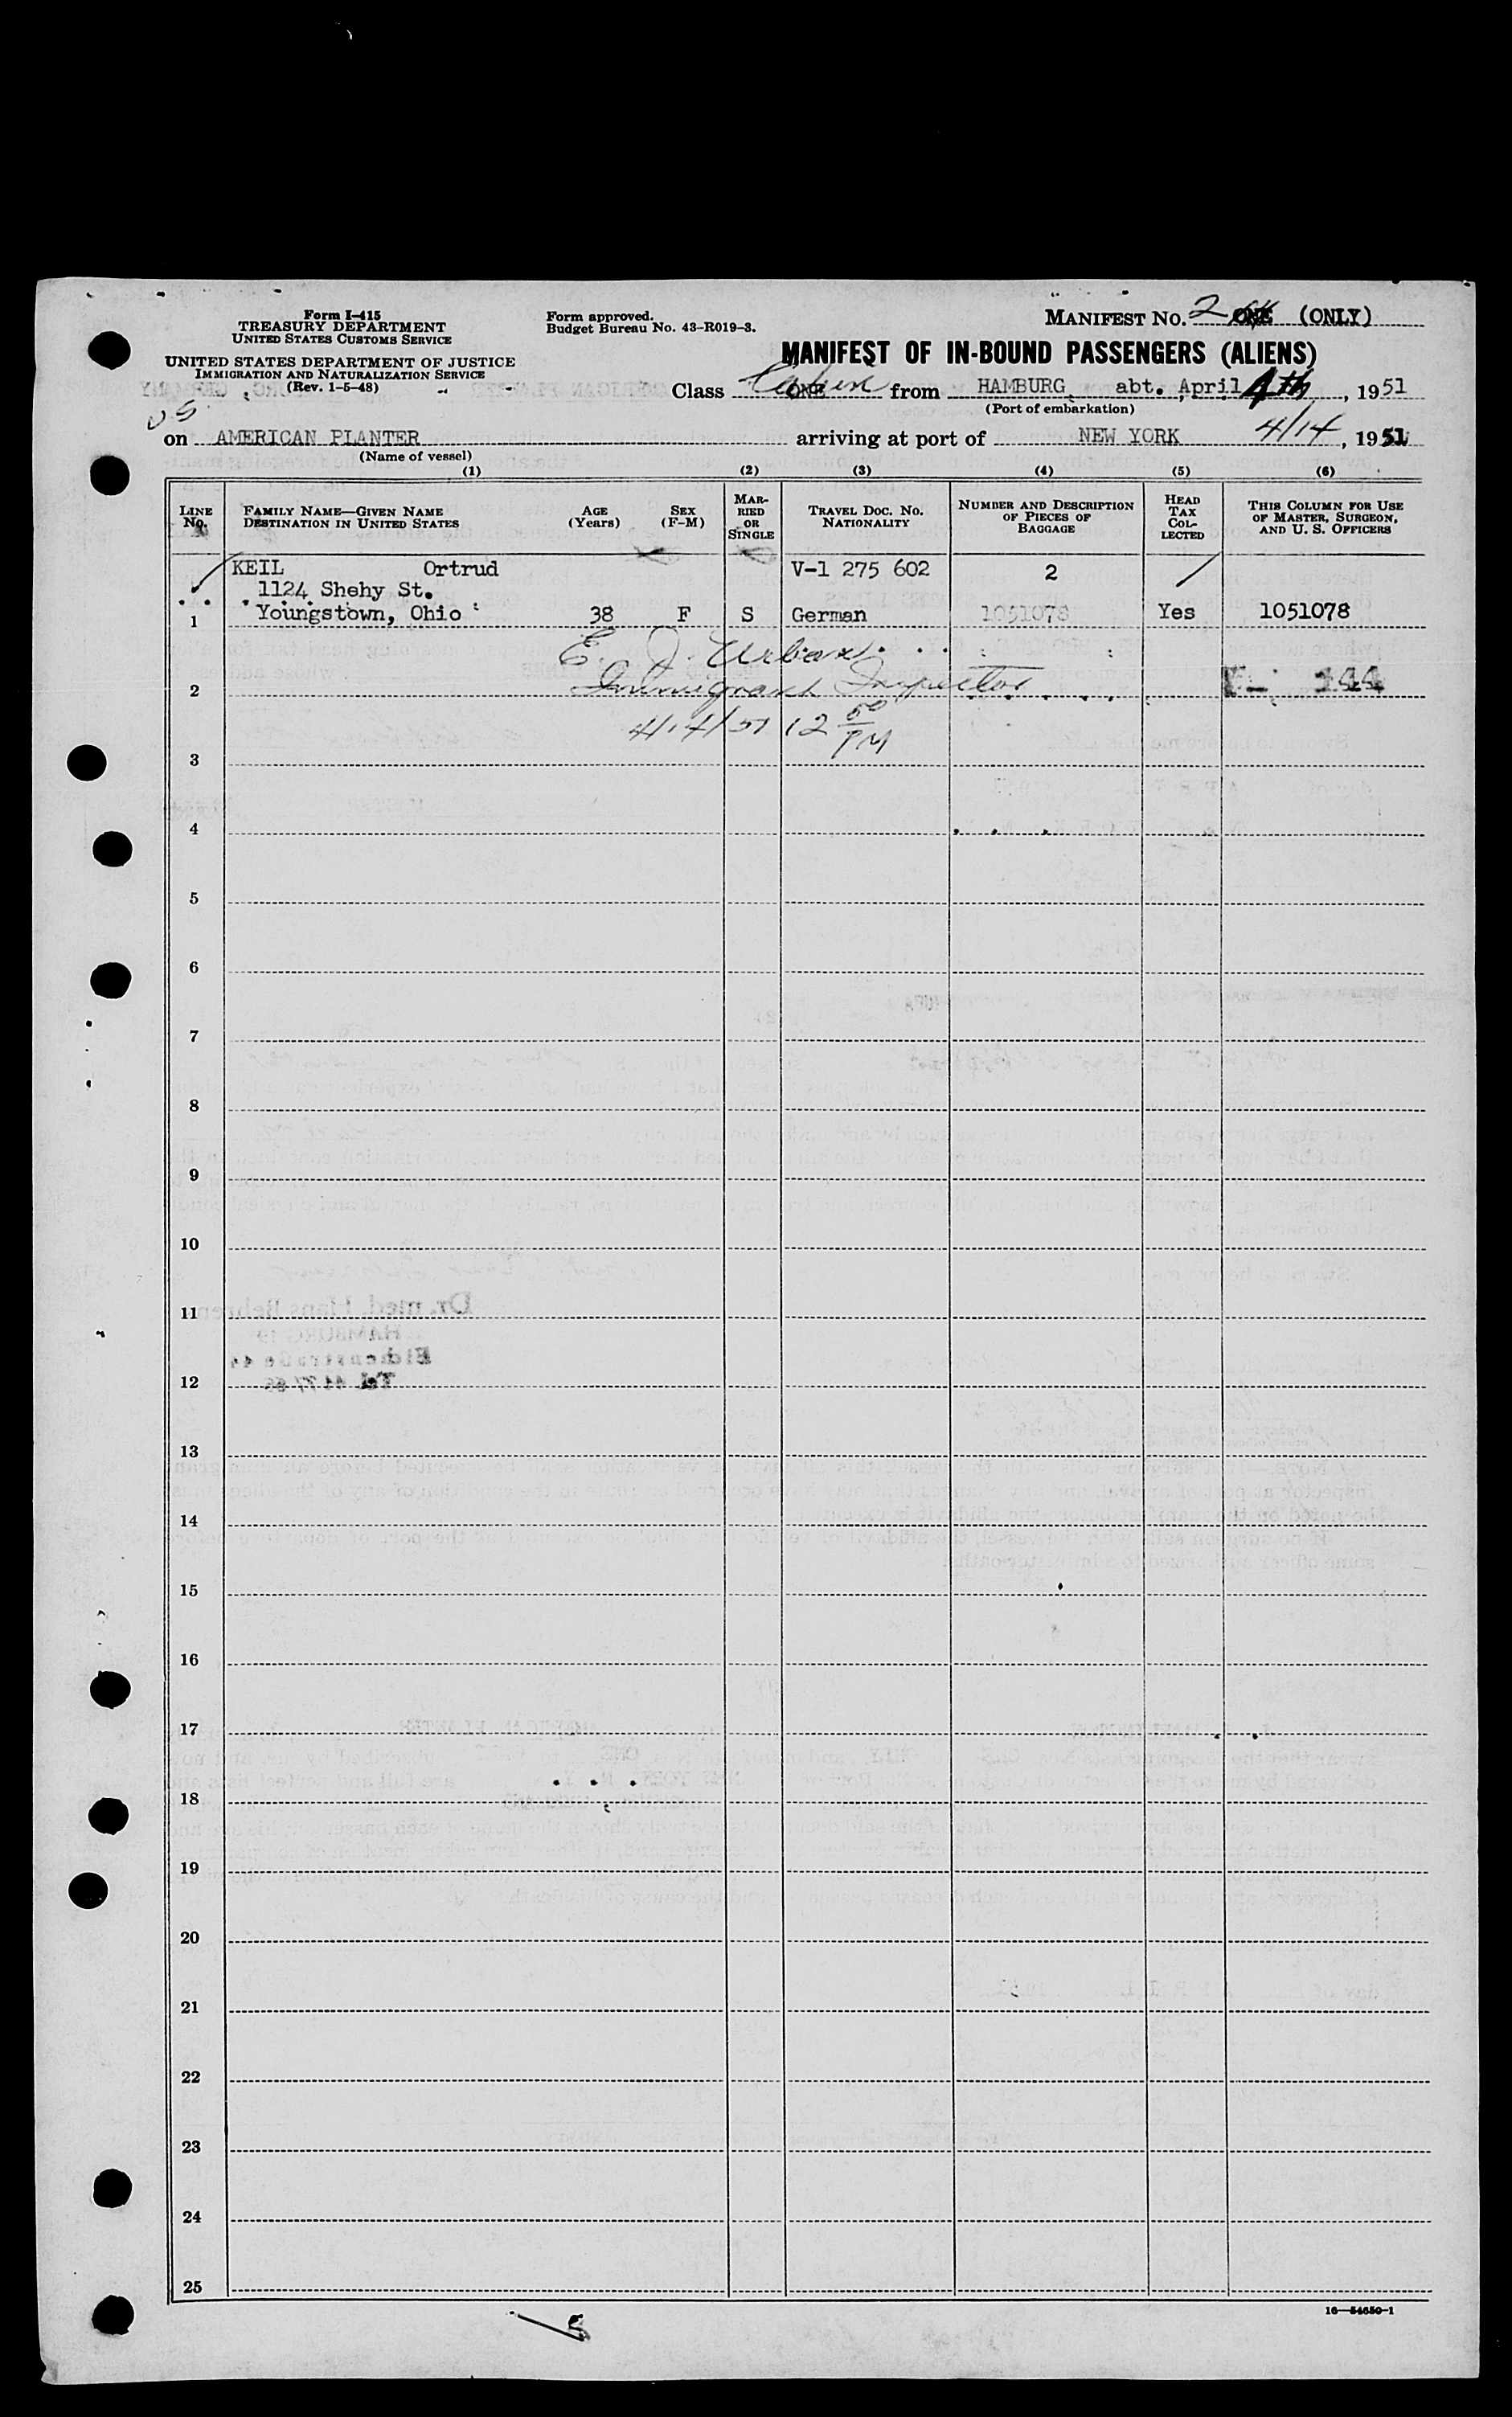 Form I-415
TREASURY DEPARTMENT
UNITED STATES CUSTOMS SERVICE
UNITED STATES DEPARTMENT OF JUSTICE
IMMIGRATION AND NATURALIZATION SERVICE
(Rev. 1-5-48)
Form approved.
Budget Bureau No. 43-R019-3.
MANIFEST NO. 2 (ONLY)
MANIFEST OF IN-BOUND PASSENGERS (ALIENS)
Class Cabin from HAMBURG, abt. April 4th, 1951
(Port of embarkation)
US
on AMERICAN PLANTER arriving at port of NEW YORK 4/14, 1951
(Name of vessel)
(1) (2) (3) (4) (5) (6)
LINE No.
FAMILY NAME—GIVEN NAME
DESTINATION IN UNITED STATES
AGE
(Years)
SEX
(F-M)
MARRIED OR SINGLE
TRAVEL DOC. NO.
NATIONALITY
NUMBER AND DESCRIPTION OF PIECES OF BAGGAGE
HEAD TAX COLLECTED
THIS COLUMN FOR USE OF MASTER, SURGEON, AND U. S. OFFICERS
KEIL Ortrud V-1 275 602 2
1124 Shehy St.
1 Youngstown, Ohio 38 F S German 1051078 Yes 1051078
E. J. Urban
Immigrant Inspector
2 144
4/14/51 12 50 PM
3
4
5
6
7
8
9
10
11
12
13
14
15
16
17
18
19
20
21
22
23
24
25
16—54650-1